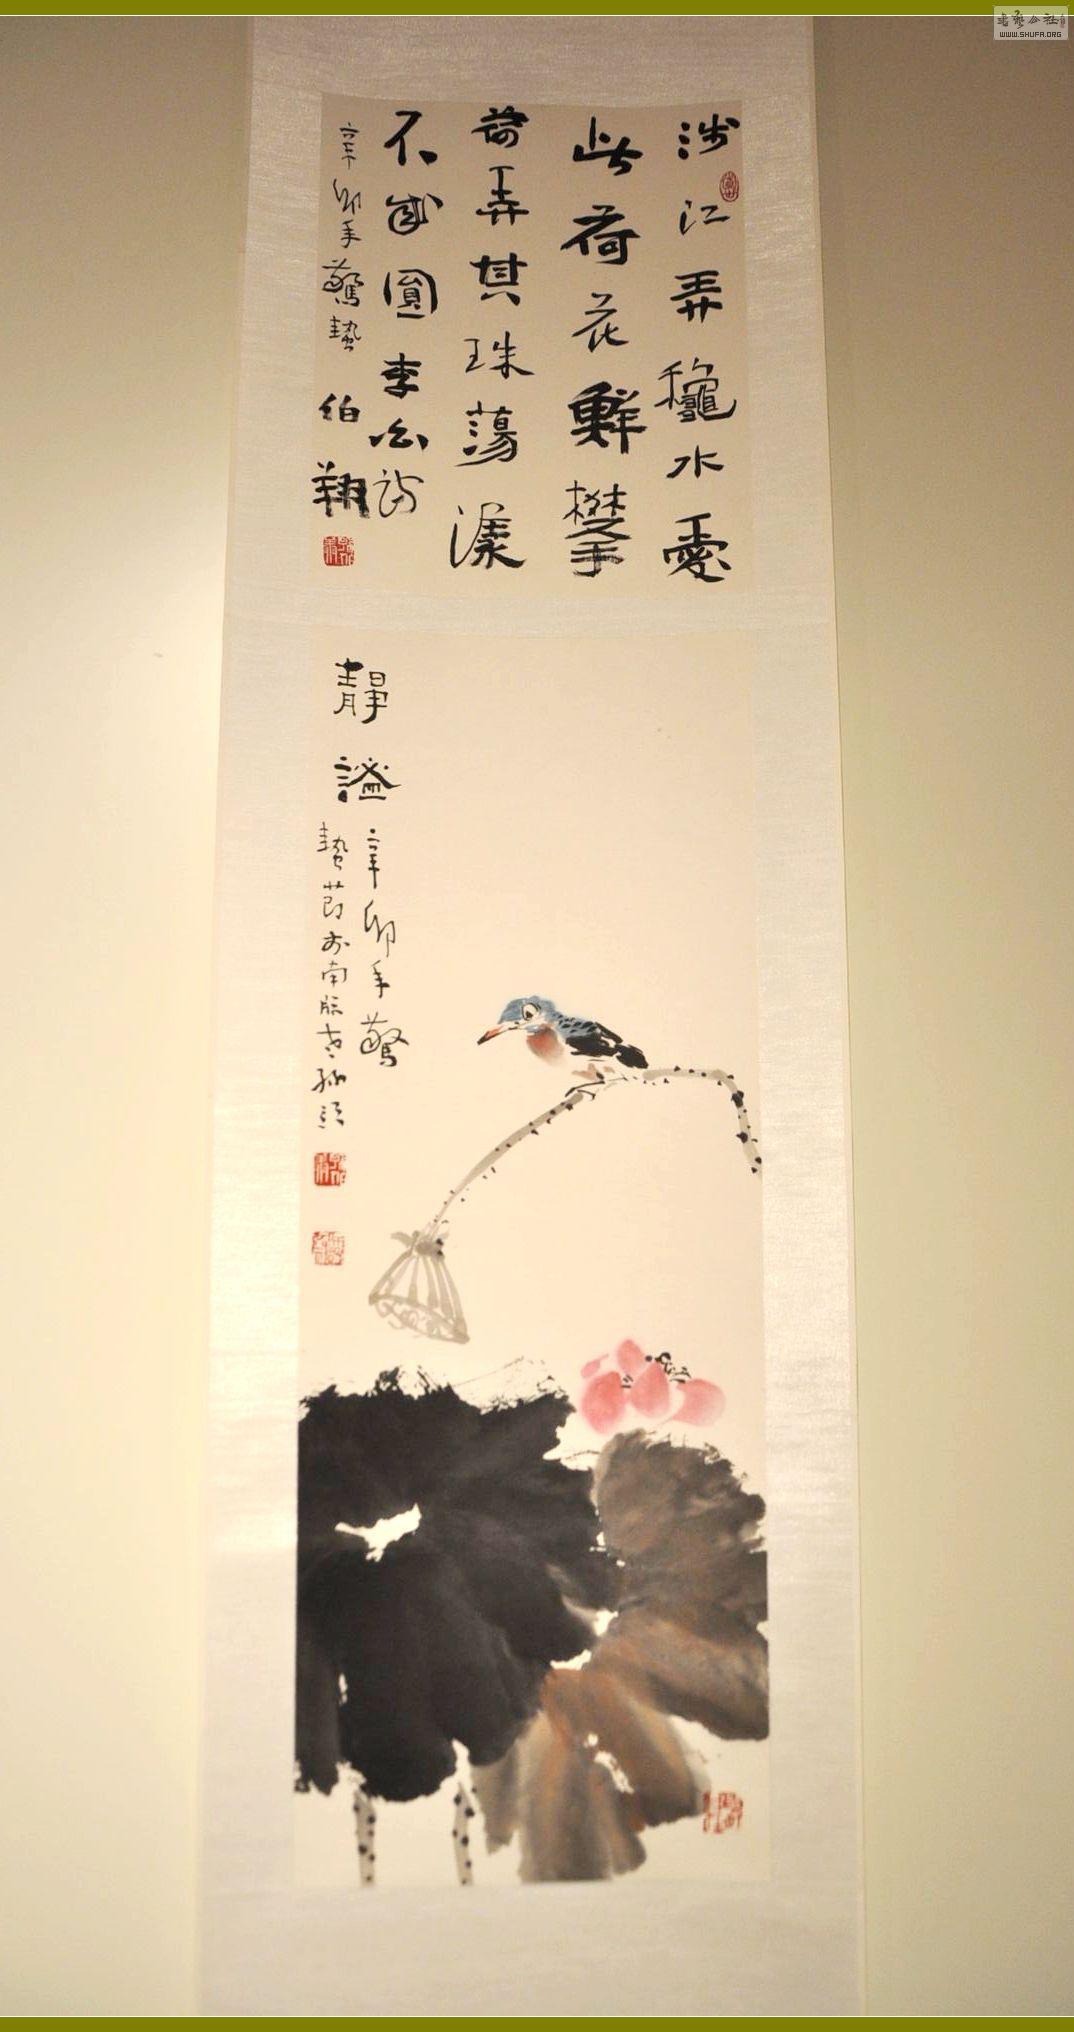 涉江弄穐水爱
此荷花鮮攀
荷弄其珠蕩漾
不成圓李白詩
辛卯年驚蟄
伯翔
靜謐
辛卯年驚
蟄节於南
书艺公社
WWW.SHUFA.ORG